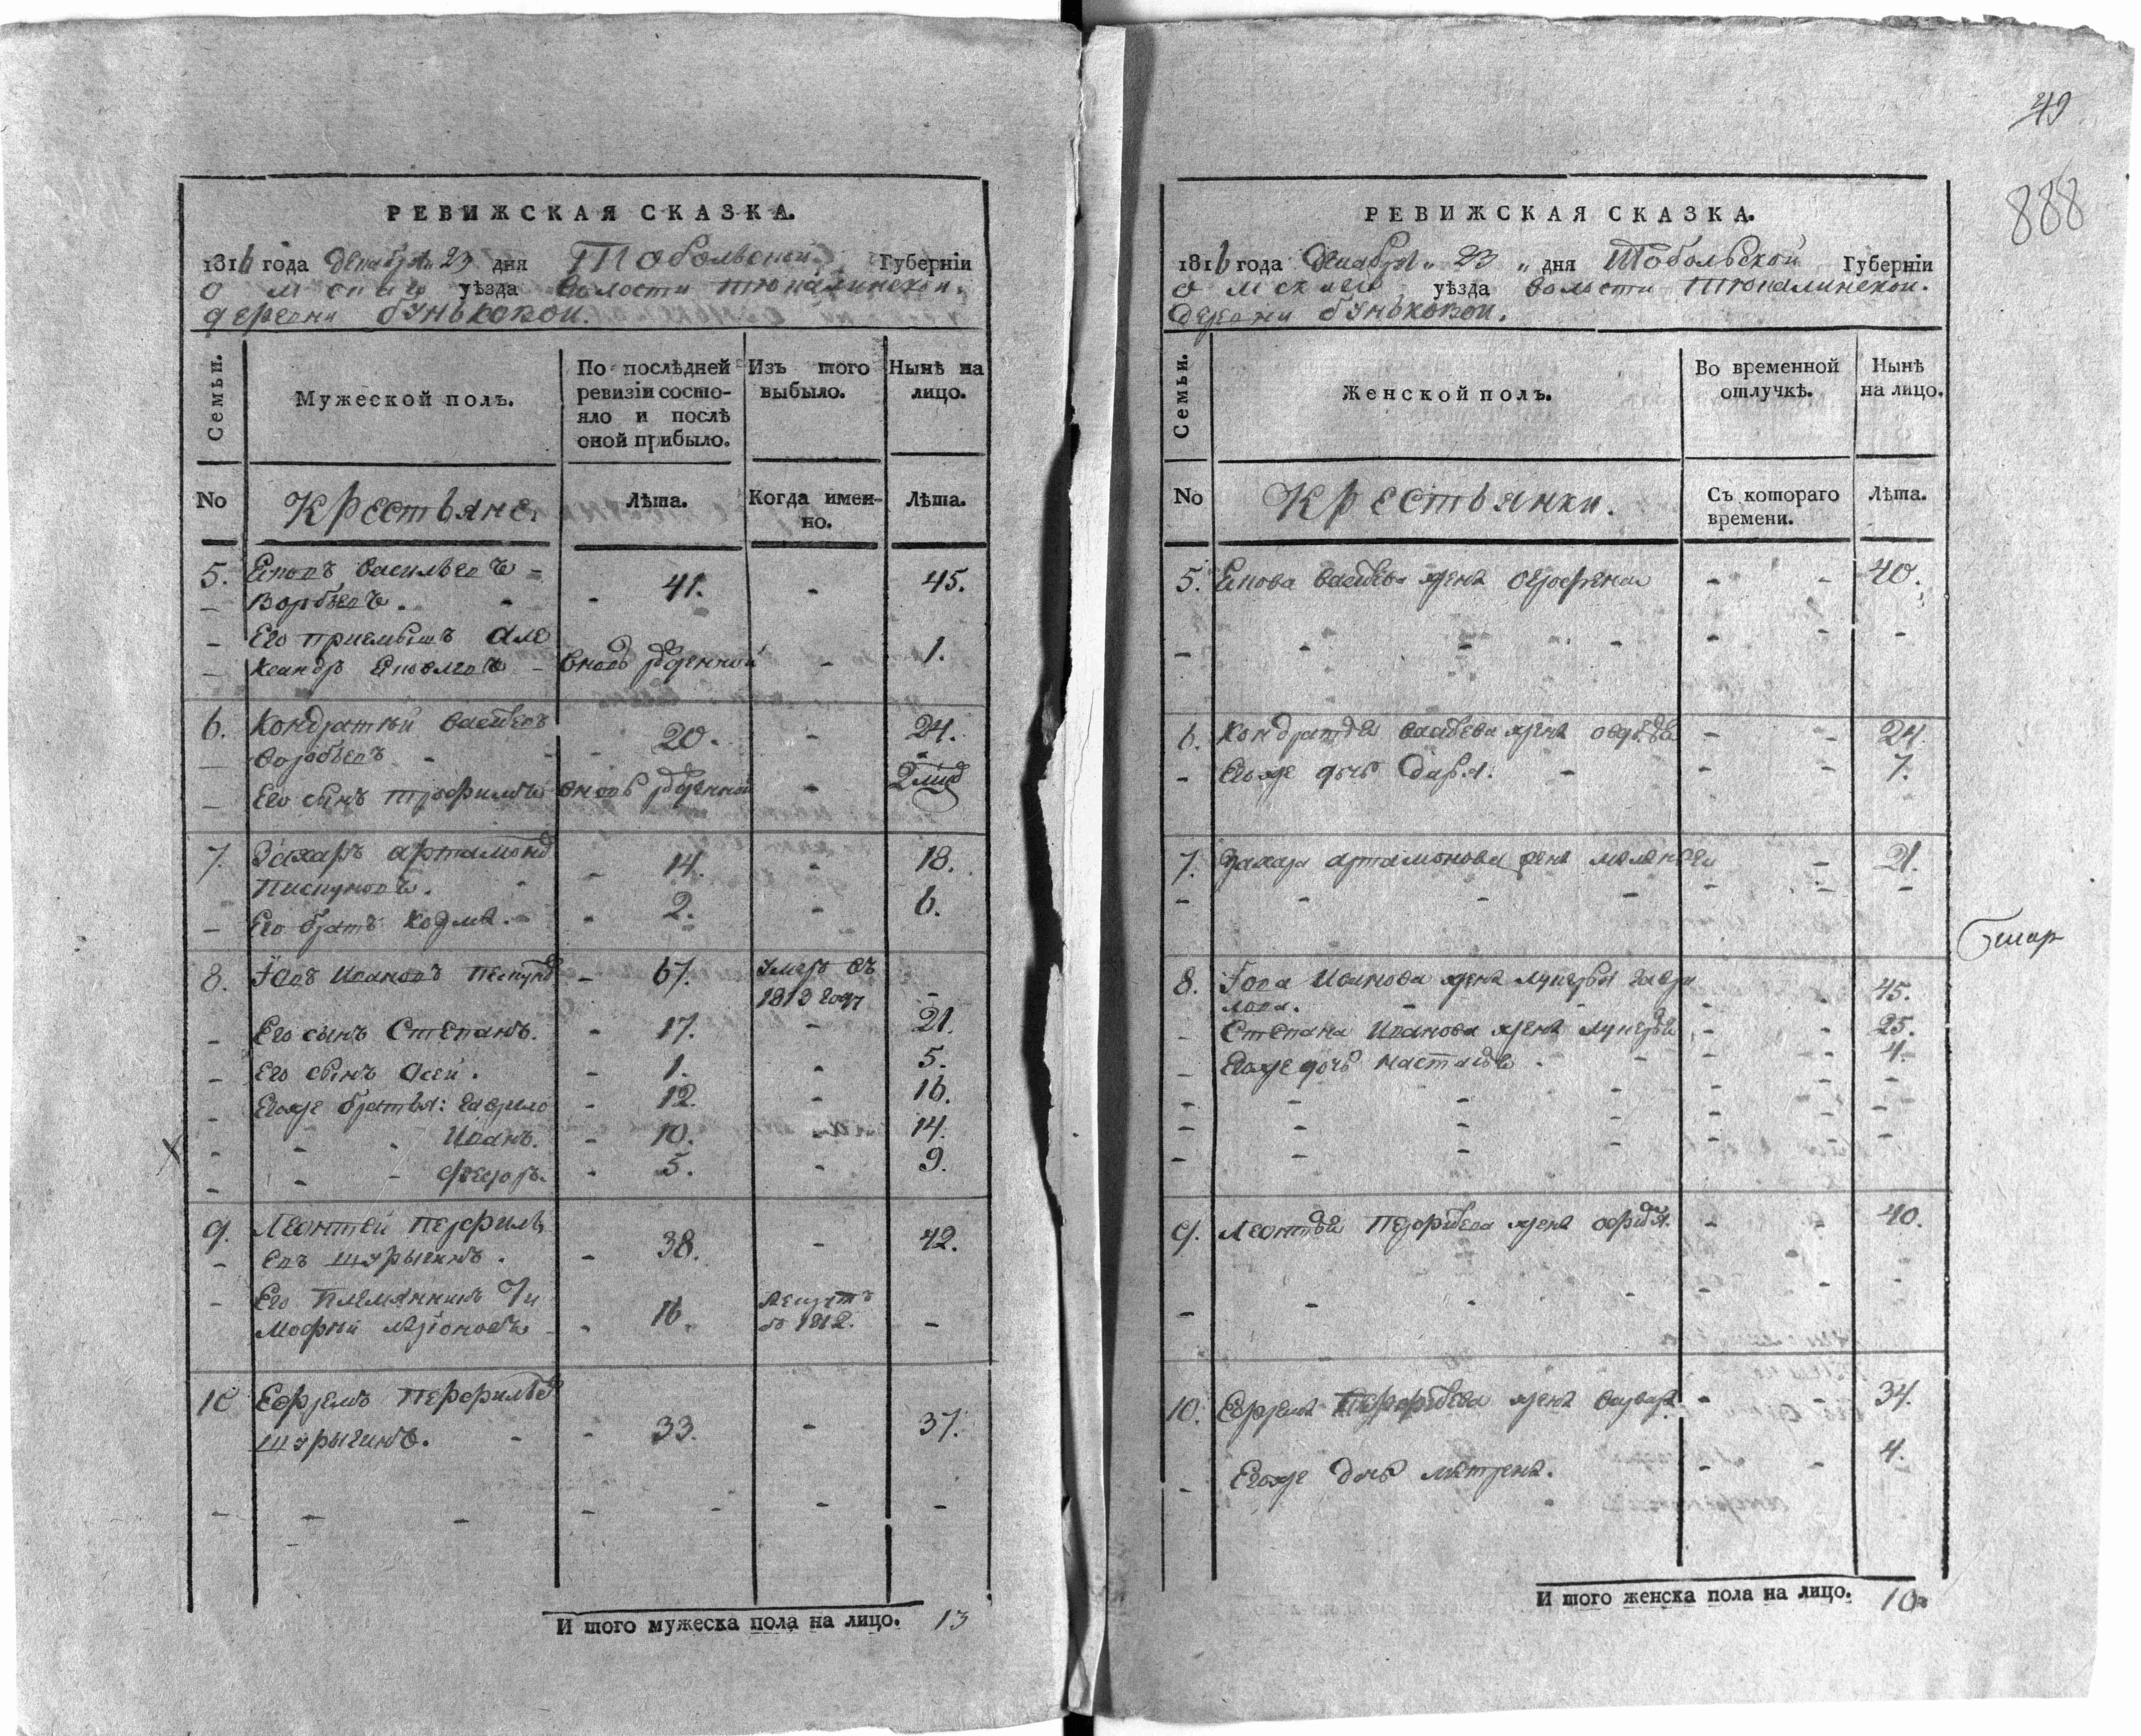 РЕВИЖСКАЯ СКАЗКА.
1816 года Декабря 23 дня Тобольской Губерніи
Омскаго уѣзда волости тюкалинской.
деревни буньковой.
Семьи.
Мужеской полъ.
По послѣдней ревизіи состояло и послѣ оной прибыло.
Изъ того выбыло.
Нынѣ на лицо.
No
Крестьяне.
Лѣта.
Когда именно.
Лѣта.
5. Васильевъ - 41. - 45.
Воробьевъ.
Его приемышъ Але
ксандр вновь рожденной - 1.
6. Кондратей Васильевъ 20. - 24.
воробьевъ
Его сынъ трофимъ вновь рожденной -
7. Захаръ артамонов 14. - 18.
Пискуновъ.
Его братъ Козма. - 2. - 6.
8. Іовъ Ивановъ - 67. Умеръ въ
1813 году -
Его сынъ Степанъ. - 17. - 21.
Его сынъ - 1. - 5.
Егоже братья: гаврило - 12. - 16.
Иванъ. - 10. - 14.
Федоръ. - 5. - 9.
9. Леонтей перфиль
евъ шурыгинъ. - 38. - 42.
Его племянникъ Ти
мофей - 16. рекрутъ
въ 1812. -
10 Ефремъ перфильев
шурыгинъ. - 33. - 37.
И того мужеска пола на лицо. 13
49
888
РЕВИЖСКАЯ СКАЗКА.
1816 года Декабря 23 дня Тобольской Губерніи
омскаго уѣзда волости Тюкалинской.
деревни буньковой.
Семьи.
Женской полъ.
Во временной отлучкѣ.
Нынѣ на лицо.
No
Крестьянки.
Съ котораго времени.
Лѣта.
5. жена - - 40.
6. Кондратья васильева жена - - 24.
Егоже дочь Дарья. - - 7.
7. Захара артамонова жена - 21.
8. Іова Иванова жена лукерья гаври
лова. - - 45.
Степана Иванова жена лукерья - - 25.
Егоже дочь настасья - - 4.
9. Леонтья Перфильева жена - - 40.
10. Ефрема Перфильева жена - - 34.
Егоже дочь матрена. - - 4.
И того женска пола на лицо. 10